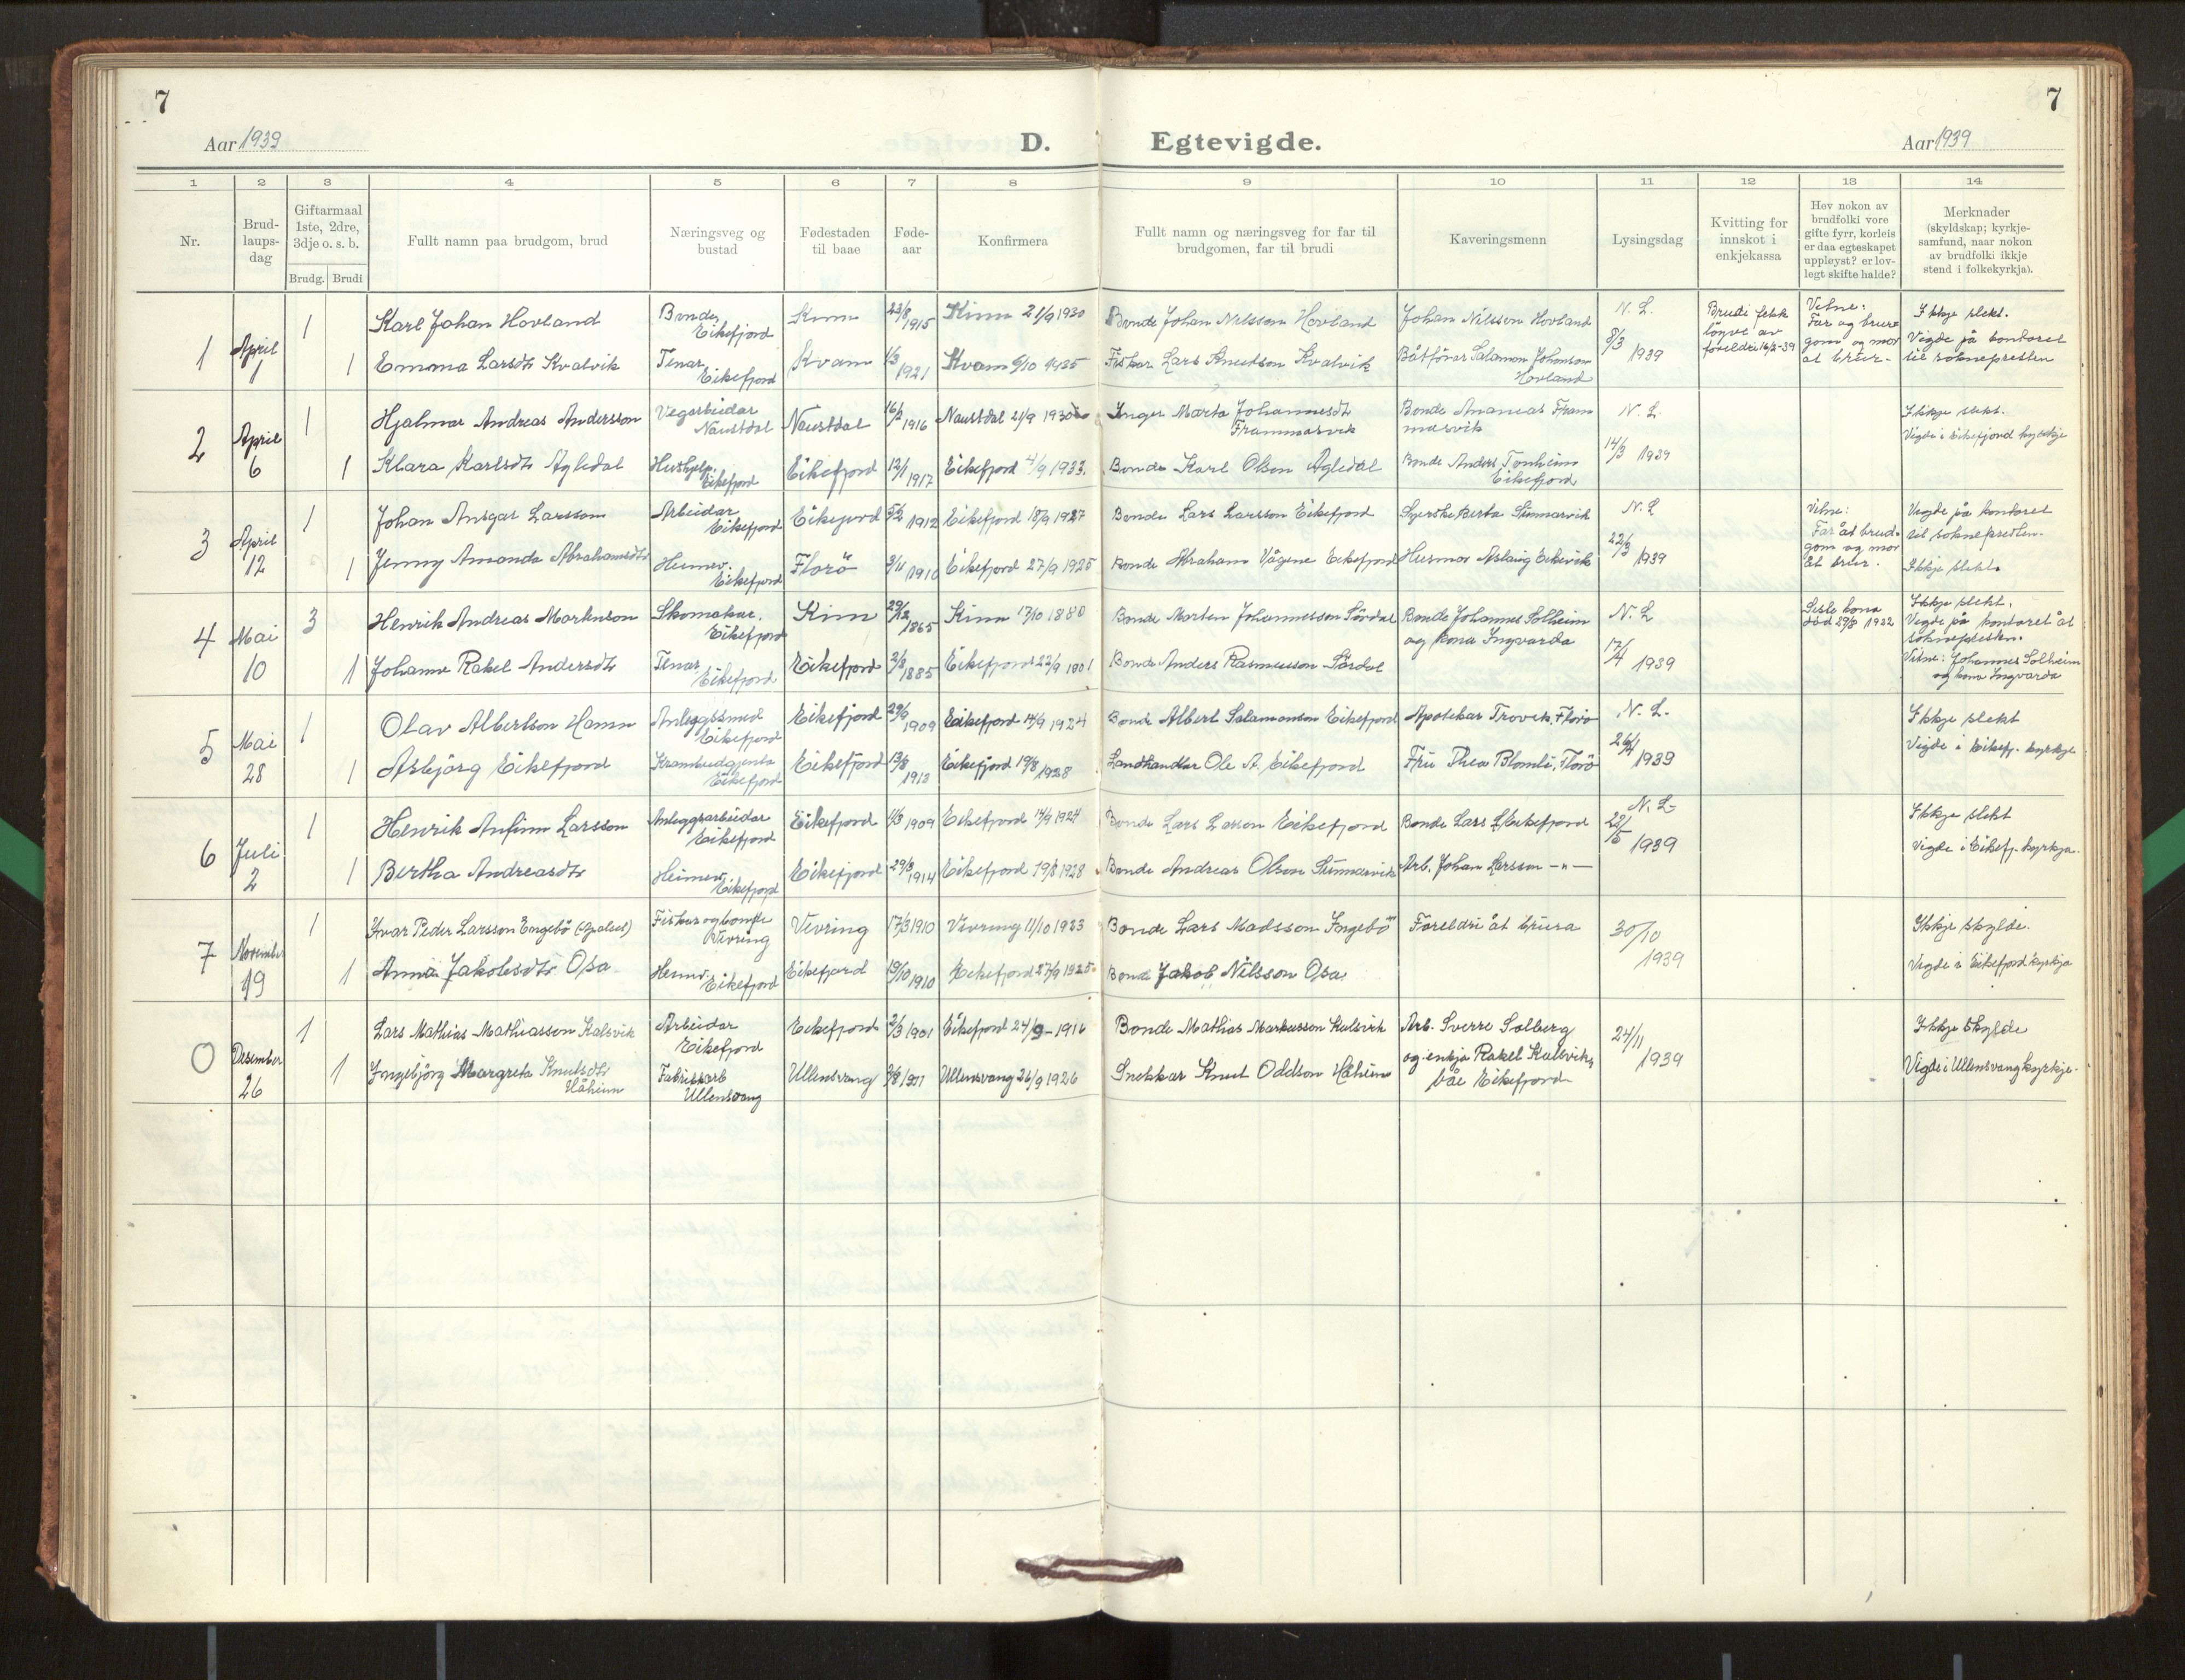 7
7
Aar 1939
D. Egtevigde.
Aar 1939
1 2 3 4 5 6 7 8 9 10 11 12 13 14
Nr.
Brud-
laups-
dag
Giftarmaal
1ste, 2dre,
3dje o. s. b.
Brudg. Brudi
Fullt namn paa brudgom, brud
Næringsveg og
bustad
Fødestaden
til baae
Føde-
aar
Konfirmera
Fullt namn og næringsveg for far til
brudgomen, far til brudi
Kaveringsmenn
Lysingsdag
Kvitting for
innskot i
enkjekassa
Hev nokon av
brudfolki vore
gifte fyrr, korleis
er daa egteskapet
uppløyst? er lov-
legt skifte halde?
Merknader
(skyldskap; kyrkje-
samfund, naar nokon
av brudfolki ikkje
stend i folkekyrkja).
1
April
1
1
Karl Johan Hovland
Bonde,
Eikefjord
Kinn
23/8 1915
Kinn 21/9 1930
Bonde Johan Nilsson Hovland
Johan Nilsson Hovland
N. L.
8/3 1939
Brudi fekk
løyve av
foreldri 16/2-39
Vitne:
Far og brur-
gom og mor
at brur-
Ikkje slekt.
Vigde på kontoret
til soknepresten
1
Emma Larsdtr Kvalvik
Tenar,
Eikefjord
Kvam
1/3 1921
Kvam 6/10 1935
Fiskar Lars Knudson Kvalvik
Båtførar Salamon Johanson
Hovland
2
April
6
1
Hjalmar Andreas Andersson
Vegarbeidar
Naustdal
Naustdal
16/2 1916
Naustdal 21/9 1930
Inger Marta Johannesdtr
Frammarsvik
Bonde Ananias Fram
marsvik
N. L.
14/3 1939
Ikkje slekt.
Vigde i Eikefjord kyrkje
1
Klara Karlsdtr Agledal
Hushjelp.
Eikefjord
Eikefjord
12/1 1917
Eikefjord 4/9 1933.
Bonde Karl Olsen Agledal
Bonde Anders Tonheim
Eikefjord
3
April
12
1
Johan Ansgar Larsson
Arbeidar
Eikefjord
Eikefjord
5/2 1912
Eikefjord 18/9 1927
Bonde Lars Larsson Eikefjord
Syerske Berta Sunnarvik
N. L
22/3 1939
Vitne:
Far åt brud-
gom og mor
åt brur.
Vigde på kontoret
til soknepresten.
Ikkje slekt.
1
Jenny Amanda Abrahamsdtr
Heimev.
Eikefjord
Florö
3/11 1910
Eikefjord 27/9 1925
Bonde Abraham Vågene Eikefjord
Husmor Aslaug Eikevik
4
Mai
10
3
Henrik Andreas Martenson
Skomakar.
Eikefjord
Kinn
29/12 1865
Kinn 17/10 1880
Bonde Morten Johannesson Sørdal
Bonde Johannes Solheim
og kona Ingvarda
N. L
17/4 1939
Siste kona
död 29/8 1932
Ikkje slekt.
Vigde på kontoret åt
soknepresten.
Vitne: Johannes Solheim
og kona Ingvarda
1
Johanne Rakel Andersdtr
Tenar,
Eikefjord
Eikefjord
2/8 1885
Eikefjord 22/9 1901
Bonde Anders Rasmusson Sørdal
5
Mai
28
1
Olav Albertson Hamn
Anleggssmed
Eikefjord
Eikefjord
29/9 1909
Eikefjord 14/9 1924
Bonde Albert Salamonson Eikefjord
Apotekar Trovik, Florö
N. L.
26/4 1939
Ikkje slekt
Vigde i Eikefj. kyrkje
1
Asbjörg Eikefjord
Krambudgjenta
Eikefjord
Eikefjord
13/8 1913
Eikefjord 19/8 1928
Landhandlar Ole A. Eikefjord
Fru Thea Blomli, Florö
6
Juli
2
1
Henrik Anfinn Larsson
Anleggsarbeidar
Eikefjord
Eikefjord
11/3 1909
Eikefjord 14/9 1924
Bonde Lars Larsen Eikefjord
Bonde Lars L Eikefjord
N. L.
22/5 1939
Ikkje slekt
Vigde i Eikefj. kyrkja.
1
Bertha Andreasdtr
Heimev.
Eikefjord
Eikefjord
29/3 1914
Eikefjord 19/8 1928
Bonde Andreas Olson Sunnarvik
Arb. Johan Larsson -"-
7
November
19
1
Ivar Peder Larsson Engebö
Fiskar og bonde
Vevring
Vevring
17/3 1910
Vevring 11/10 1923
Bonde Lars Madsson Engebö
Foreldri åt brura
30/10
1939
Ikkje skylde.
Vigde i Eikefjord kyrkja
1
Anna Jakobsdtr Osa
Heimv.
Eikefjord
Eikefjord
19/10 1910
Eikefjord 27/9 1925.
Bonde Jakob Nilsson Osa
0
Desember
26
1
Lars Mathias Mathiasson Kalsvik
Arbeidar
Eikefjord
Eikefjord
2/3 1901
Eikefjord 24/9-1916
Bonde Mathias Markusson Kalsvik
Arb. Sverre Solberg
og enkja Rakel Kalsvik,
båe Eikefjord
24/11
1939
Ikkje skylde
Vigde i Ullensvang kyrkje.
1
Ingebjörg Margreta Knutsdtr
Håheim
Fabrikkarb
Ullensvang
Ullensvang
Ullensvang 26/9 1926
Snekkar Knut Oddson Håheim